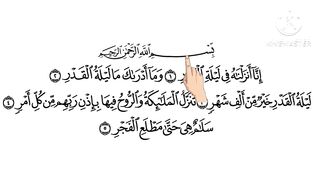 بِسْمِ ٱللَّهِ ٱلرَّحْمَٰنِ ٱلرَّحِيمِ
إِنَّآ أَنزَلْنَٰهُ فِى لَيْلَةِ ١ وَمَآ أَدْرَىٰكَ مَا لَيْلَةُ ٱلْقَدْرِ ٢
لَيْلَةُ ٱلْقَدْرِ خَيْرٌ مِّنْ أَلْفِ شَهْرٍ ٣ تَنَزَّلُ ٱلْمَلَٰٓئِكَةُ وَٱلرُّوحُ فِيهَا بِإِذْنِ رَبِّهِم مِّن كُلِّ أَمْرٍ ٤
سَلَٰمٌ هِىَ حَتَّىٰ مَطْلَعِ ٱلْفَجْرِ ٥
KINEMASTER